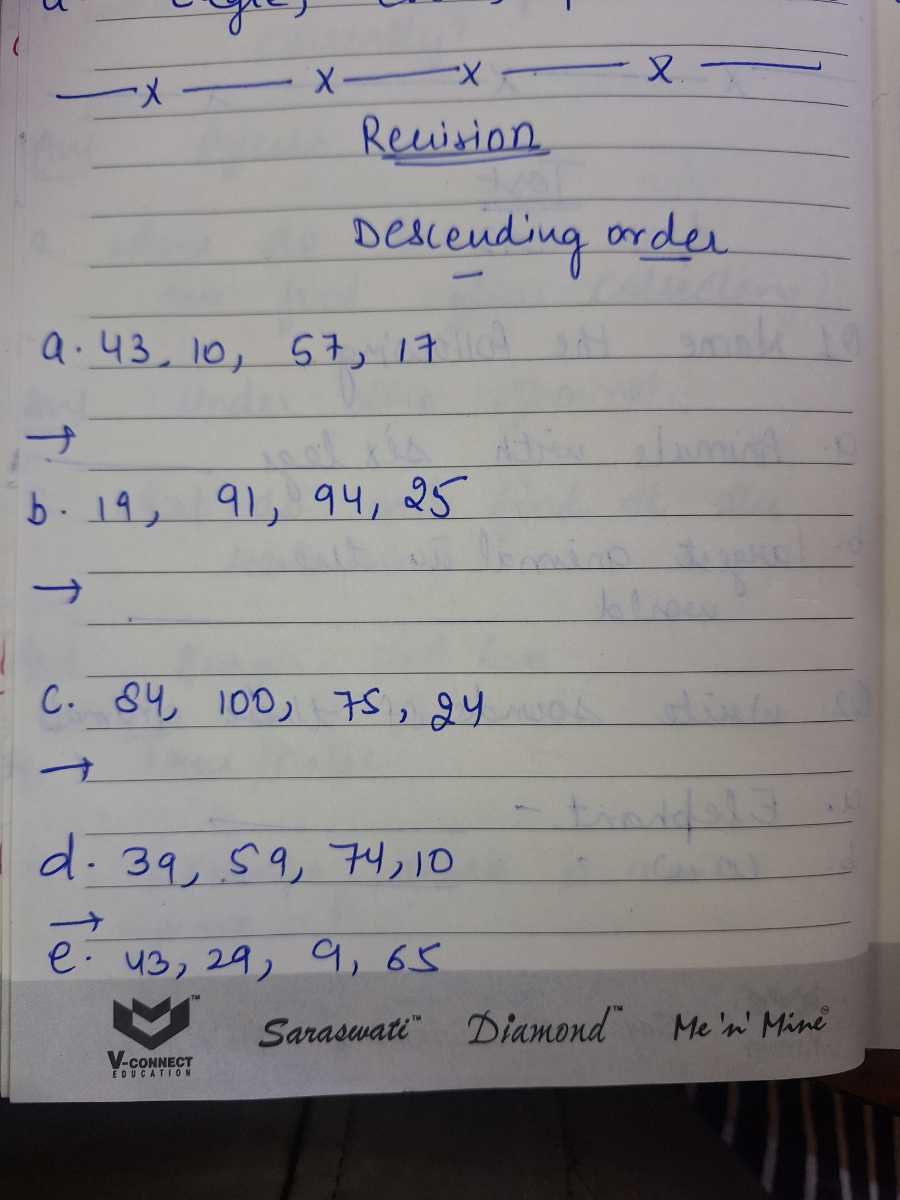 x x x x
Revision
Descending order
a. 43, 10, 57, 17
→
b. 19, 91, 94, 25
→
c. 84, 100, 75, 24
→
d. 39, 59, 74, 10
→
e. 43, 29, 9, 65
V-CONNECT
EDUCATION
Saraswati™ Diamond™ Me 'n' Mine®